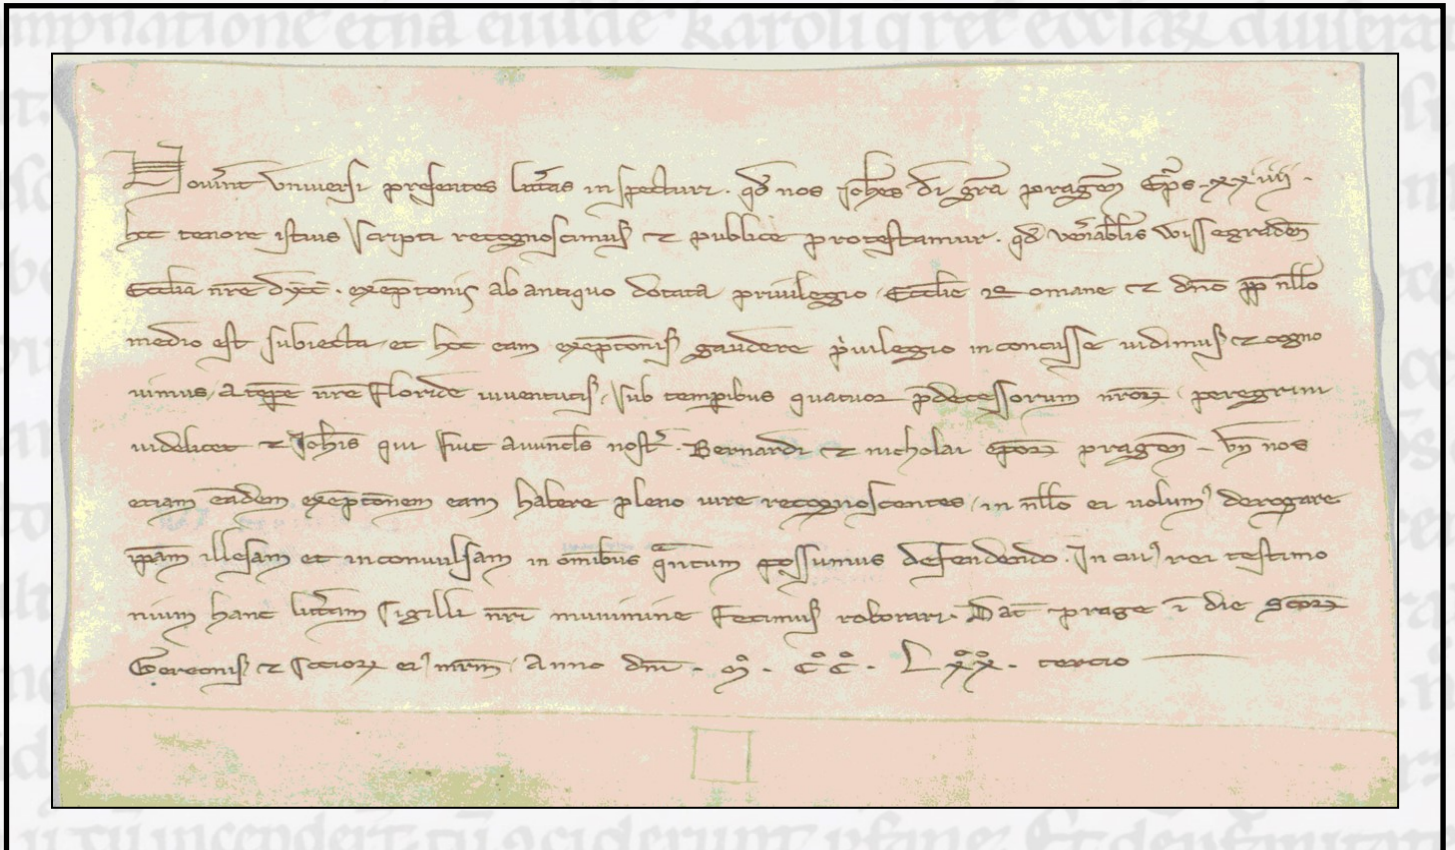 Nouint vniuersi presentes litas inspecturi . qd nos Johes di gra pragen Eps . xx iiii .
hoc tenore istius scripti recognoscimus et publice protestamur . qd venabilis wissegraden
Ecclia nre dyoc . exeptonis ab antiquo dotata priuilegio . Ecclie Romane et dno pp nllo
medio est subiecta et hoc eam exeptonis gaudere priuilegio inconcusse uidimus et cogno
uimus , a tepe nre floride iuuentutis , sub temporibus quatuor pdecessorum nror , peregrini
uidelicet et Johis qui fuit auuncls nostr . Bernardi et nicholai epor pragen . vn nos
etiam eandem exeptonem eam habere pleno iure recognoscentes , in nllo ei uolum derogare
ipam illesam et inconuulsam in omibus qntum possumus defendendo . In cui rei testimo
nium hanc litam sigilli nri munimine fecimus roborari . Dat prage i die scor
Gereonis et socior ei mrm , Anno dni . m . cc . Lxx . tercio